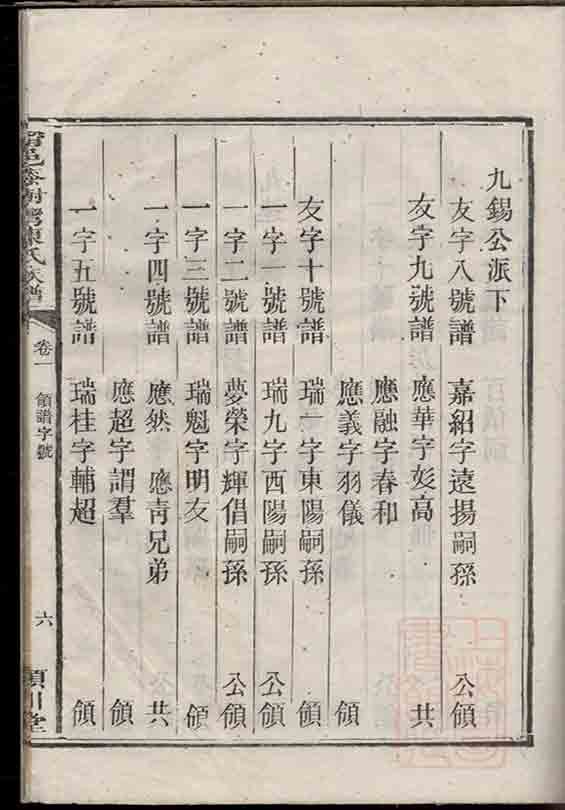 九錫公派下
友字八號譜 嘉紹字遠揚嗣孫 公領
友字九號譜 應華字彣高 共
應融字春和
應義字羽儀 領
友字十號譜 瑞一字東陽嗣孫 領
一字一號譜 瑞九字西陽嗣孫 公領
一字二號譜 夢榮字輝倡嗣孫 公領
一字三號譜 瑞魁字明友 領
一字四號譜 應然 應青兄弟 共
應超字謂羣 領
一字五號譜 瑞桂字輔超 領
陳氏族譜 卷一 領譜字號 六 潁川堂